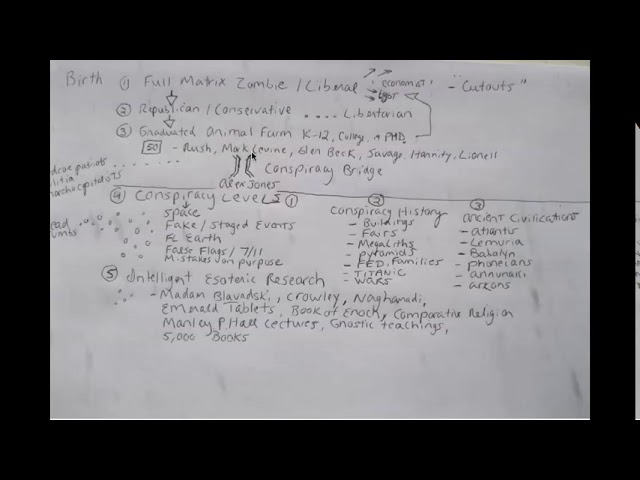 Birth ① Full Matrix Zombie / Liberal economist " - Cutouts "
② Republican / Conservative .... Libertarian
③ Graduated Animal Farm K-12, College, + PHD
50 - Rush, Mark Levine, Glen Beck, Savage, Hannity, Lionell
patriots
Conspiracy Bridge
Alex Jones
④ Conspiracy Levels ①
space
Fake / Staged Events
FL Earth
False Flags / 7/11
Mistakes on purpose
②
Conspiracy History
- Buildings
- Fairs
- Megaliths
- Pyramids
- FED. Families
- TITANIC
- WARS
③
Ancient Civilications
- atlantis
- Lemuria
- Babalyn
- phonecians
- annunaki
- arkons
⑤ Intelligent Esoteric Research
- Madam Blavadski, Crowley, Naghamadi,
Emerald Tablets, Book of Enock, Comparative Religion
Manley P. Hall Lectures, Gnostic teachings,
5,000 Books